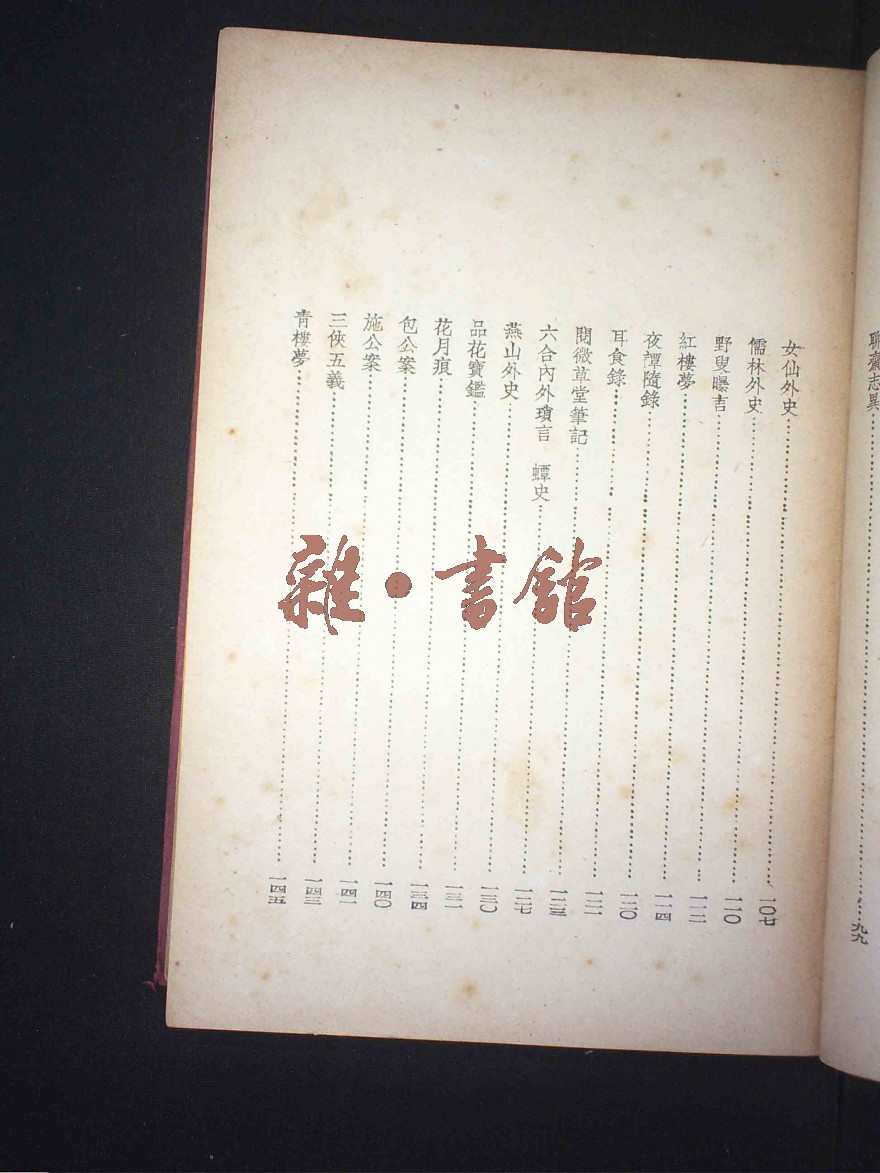 聊齋志異……九九
女仙外史……一〇七
儒林外史……一一〇
野叟曝言……一一二
紅樓夢……一一四
夜譚隨錄……一二〇
耳食錄……一二一
閱微草堂筆記……一二三
六合內外瑣言　蟫史……一二七
燕山外史……一三〇
品花寶鑑……一三一
花月痕……一三四
包公案……一四〇
施公案……一四一
三俠五義……一四三
青樓夢……一四五
雜·書館